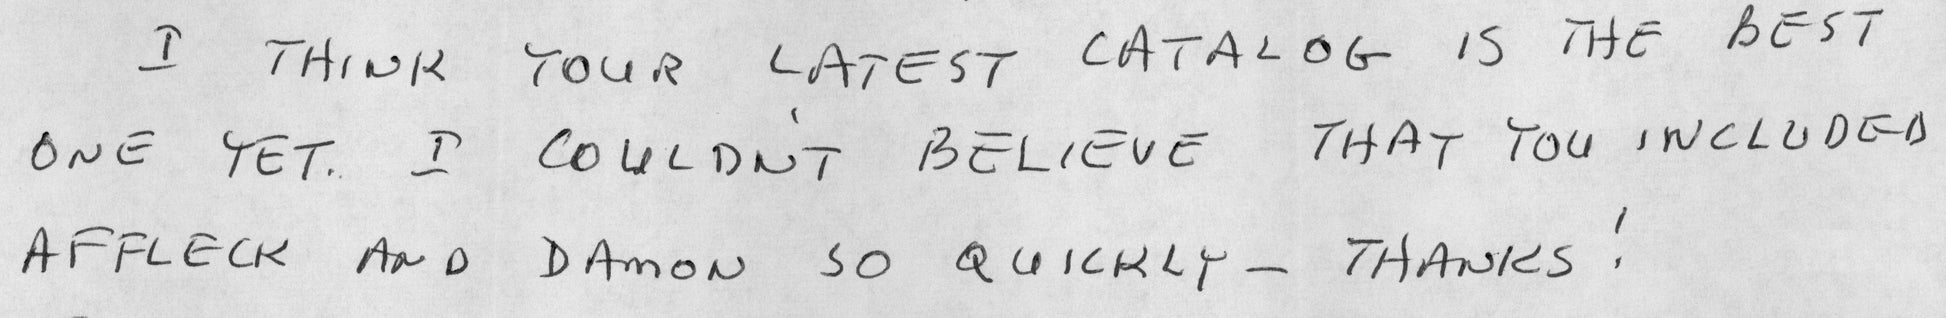 I THINK YOUR LATEST CATALOG IS THE BEST
ONE YET. I COULDN'T BELIEVE THAT YOU INCLUDED
AFFLECK AND DAMON SO QUICKLY — THANKS!